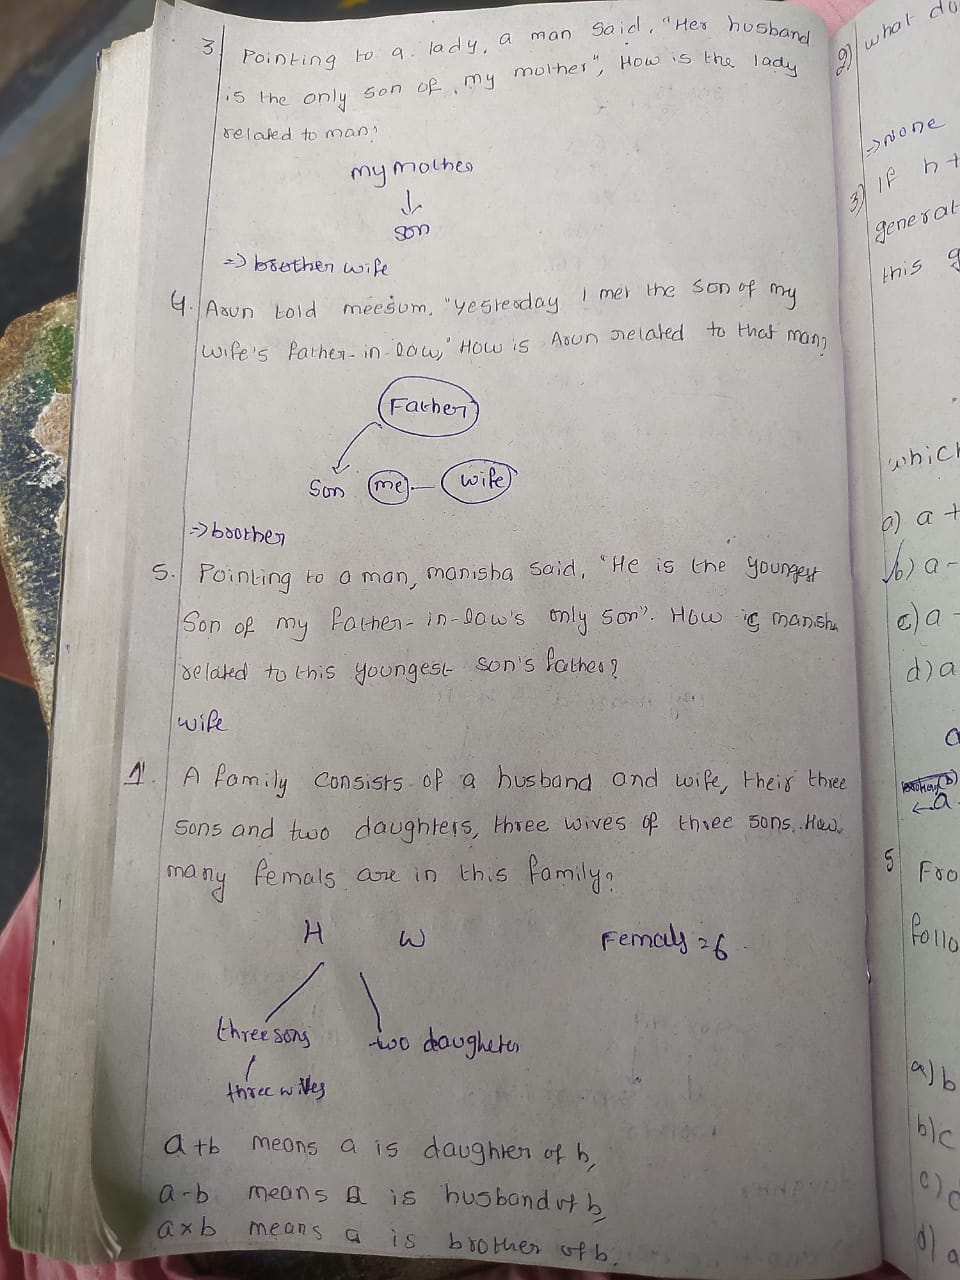 3 Pointing to a lady, a man said, "Her husband
is the only son of my mother", How is the lady
related to man?
my mother
son
=> brother wife
4. Arun told meesum, "yesterday I met the son of my
wife's father-in-law," How is Arun related to that man?
Father
Son me wife
=> brother
5. Pointing to a man, manisha said, "He is the youngest
Son of my father-in-law's only son". How is manisha
related to this youngest son's father?
wife
1. A family consists of a husband and wife, their three
sons and two daughters, three wives of three sons. How
many femals are in this family?
H W Femals = 6
three sons two daughters
three wives
a+b means a is daughter of b,
a-b means a is husband of b,
a×b means a is brother of b.
2) what do
=> None
3) If h+
general
this g
which
a) a+
b) a-
c) a-
d) a
a
5 Fro
follo
a) b
b) c
c)
d) a